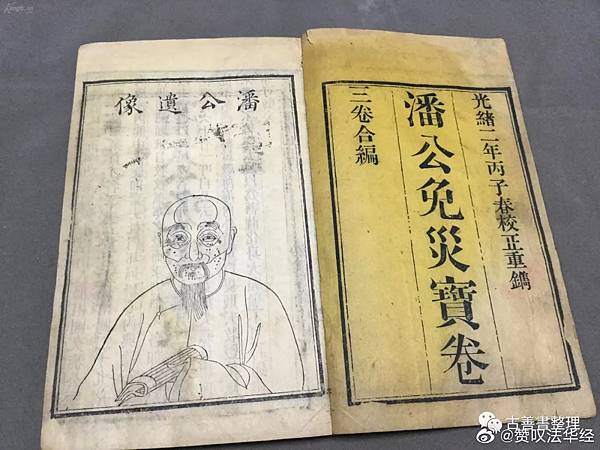 光緒二年丙子春校正重鐫
潘公免災寶卷
三卷合編
潘公遺像
古善書整理
@赞叹法华经